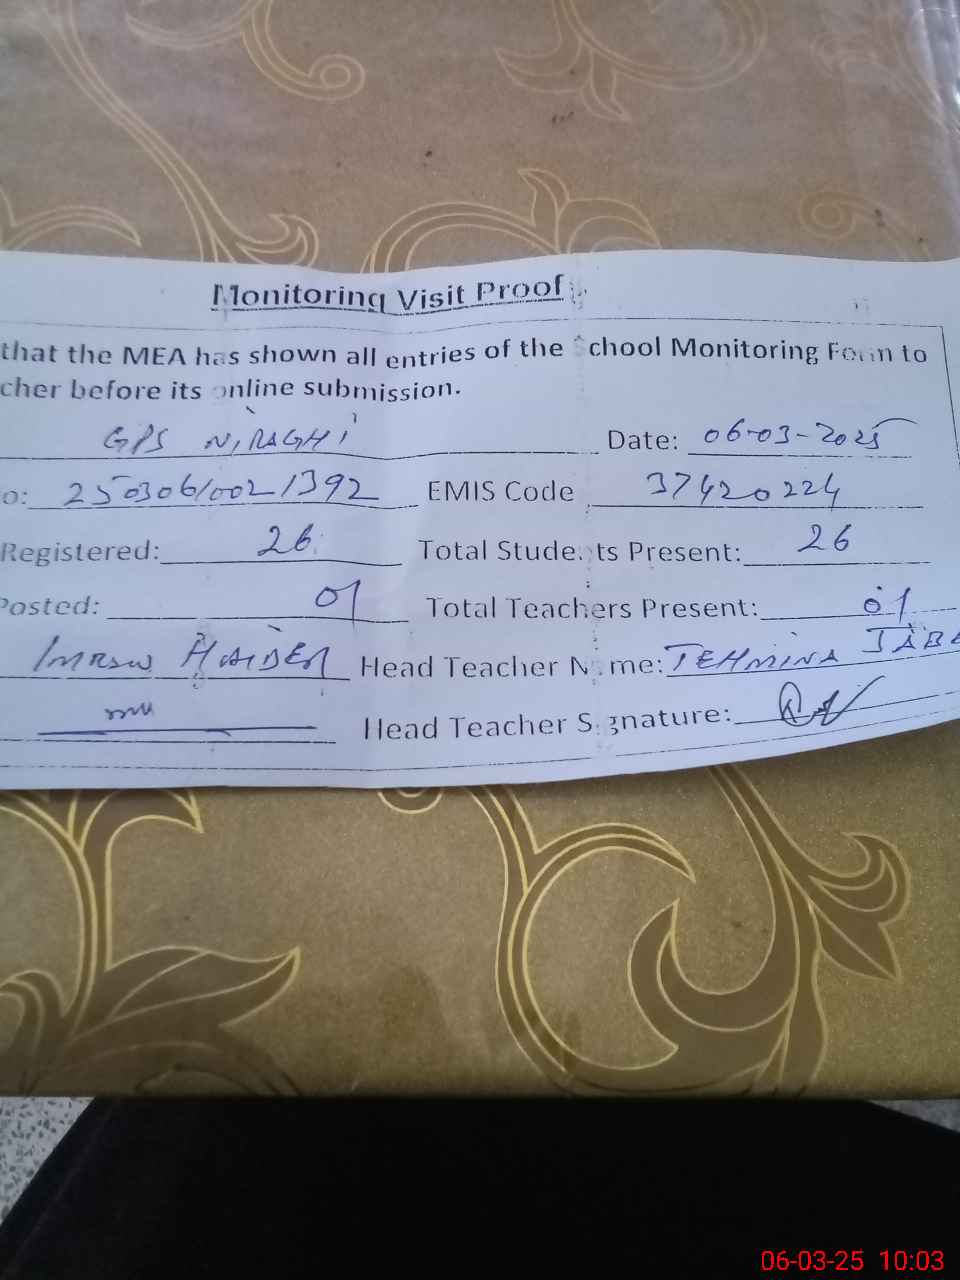 Monitoring Visit Proof
that the MEA has shown all entries of the School Monitoring Form to
cher before its online submission.
GPS NIRAGHI Date: 06-03-2025
o: 250306/002/1392 EMIS Code 37420224
Registered: 26 Total Students Present: 26
Posted: 01 Total Teachers Present: 01
Imran HAIDER Head Teacher Name: TEHMINA JABE
Head Teacher Signature:
06-03-25 10:03